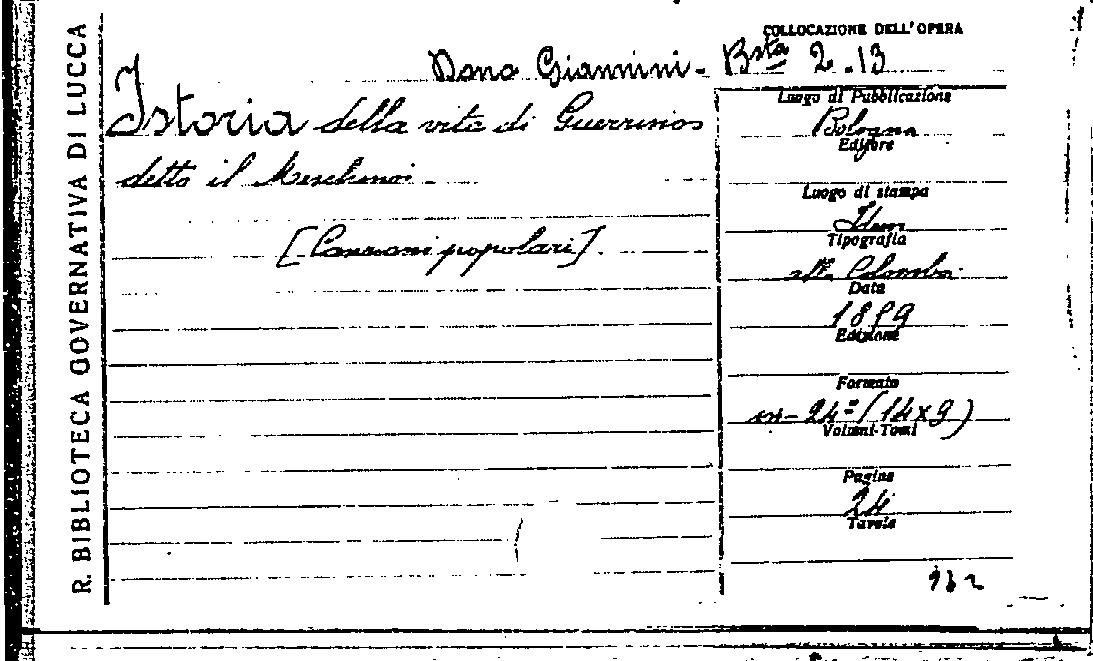 R. BIBLIOTECA GOVERNATIVA DI LUCCA
COLLOCAZIONE DELL'OPERA
Dono Giannini - Bsta 2.13
Istoria della vita di Guerrinos
detto il Meschino
[Canzoni popolari].
Luogo di Pubblicazione
Bologna
Editore
Luogo di stampa
Idem
Tipografia
alla Colomba
Data
1899
Edizione
Formato
in-24° (14x9)
Volumi-Tomi
Pagine
24
Tavole